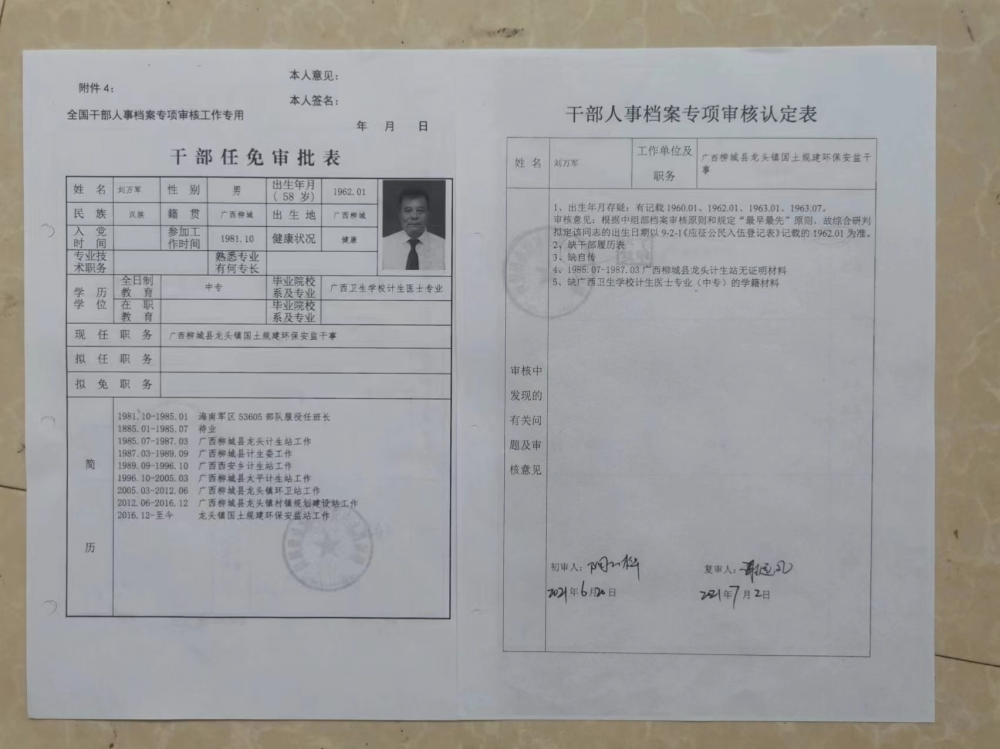 附件4：
本人意见：
本人签名：
全国干部人事档案专项审核工作专用
年 月 日
干部任免审批表
姓 名 刘万军 性 别 男 出生年月（58 岁） 1962.01
民 族 汉族 籍 贯 广西柳城 出 生 地 广西柳城
入 党 时 间 参加工作时间 1981.10 健康状况 健康
专业技术职务 熟悉专业有何专长
学 历 学 位 全日制教育 中专 毕业院校系及专业 广西卫生学校计生医士专业
在 职 教 育 毕业院校系及专业
现 任 职 务 广西柳城县龙头镇国土规建环保安监干事
拟 任 职 务
拟 免 职 务
简 历
1981.10-1985.01 海南军区53605部队服役任班长
1885.01-1985.07 待业
1985.07-1987.03 广西柳城县龙头计生站工作
1987.03-1989.09 广西柳城县计生委工作
1989.09-1996.10 广西西安乡计生站工作
1996.10-2005.03 广西柳城县太平计生站工作
2005.03-2012.06 广西柳城县龙头镇环卫站工作
2012.06-2016.12 广西柳城县龙头镇村镇规划建设站工作
2016.12-至今 龙头镇国土规建环保安监站工作
干部人事档案专项审核认定表
姓 名 刘万军 工作单位及职务 广西柳城县龙头镇国土规建环保安监干事
审核中发现的有关问题及审核意见
1、出生年月存疑：有记载1960.01、1962.01、1963.01、1963.07。
审核意见：根据中组部档案审核原则和规定“最早最先”原则，故综合研判
拟定该同志的出生日期以9-2-1《应征公民入伍登记表》记载的1962.01为准。
2、缺干部履历表
3、缺自传
4、1985.07-1987.03广西柳城县龙头计生站无证明材料
5、缺广西卫生学校计生医士专业（中专）的学籍材料
初审人：
复审人：
2021年6月20日
2021年7月2日